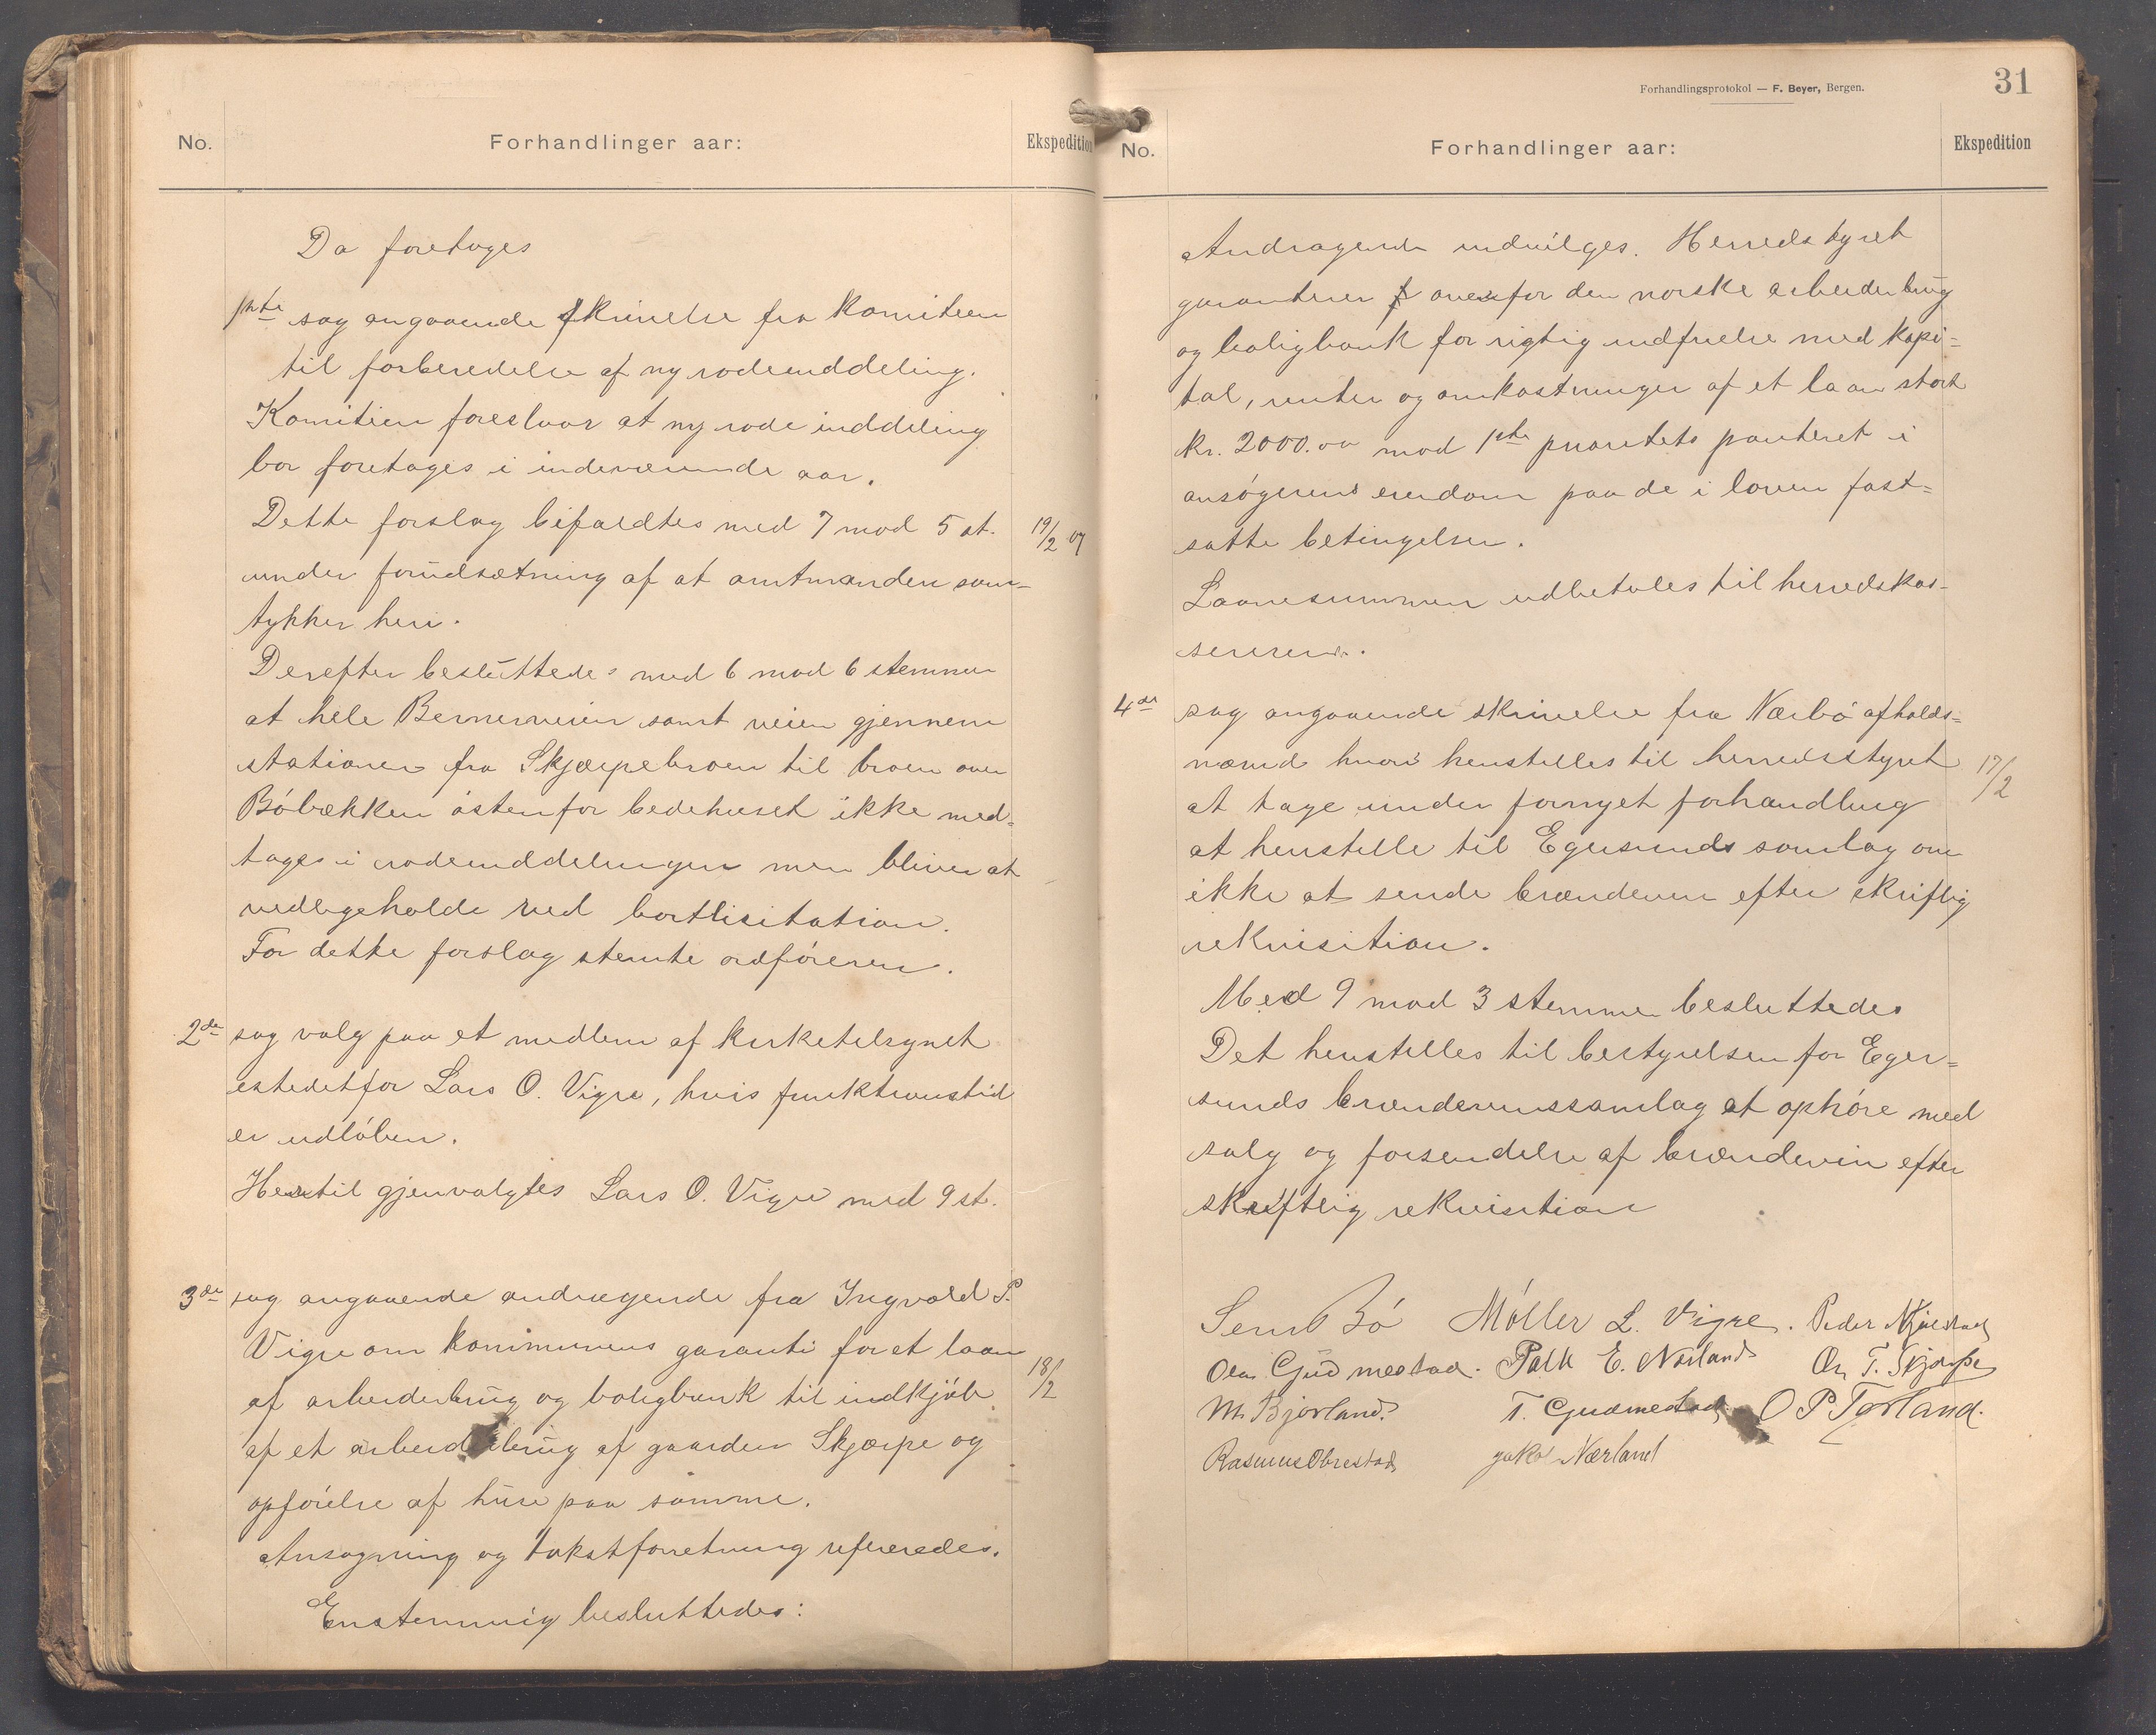 No.
Forhandlinger aar:
Ekspedition
Da foretoges
1ste sag angaaende skrivelse fra komiteen
til forberedelse af ny rodeinddeling.
Komiteen foreslaar at ny rode inddeling
bør foretages i indeværende aar.
Dette forslag bifaldtes med 7 mod 5 st. 19/2 07
under forudsætning af at amtmanden sam-
tykker heri.
Derefter besluttedes med 6 mod 6 stemmer
at hele Bernerveien samt veien gjennem
stationen fra Skjærpebroen til broen over
Bóbækken óstenfor bedehuset ikke med=
tages i rodeinddelingen men bliver at
vedligeholde ved bortlisitation.
For dette forslag stemte ordfóreren.
2den sag valg paa et medlem af kirketilsynet
istedetfor Lars O. Vigre, hvis funktionstid
er udlóben.
Hertil gjenvalgtes Lars O. Vigre med 9 st.
3die sag angaaende andragende fra Ingvald P.
Vigre om kommunens garanti for et laan
af arbeiderbrug og boligbank til indkjób 18/2
af et arbeiderbrug af gaarden Skjærpe og
opfórelse af huse paa samme.
Ansøgning og takstforretning refereredes.
Enstemmig besluttedes:
31
Forhandlingsprotokol — F. Beyer, Bergen.
No.
Forhandlinger aar:
Ekspedition
Andragende indvilges. Herredstyret
garanterer overfor den norske arbeiderbrug
og boligbank for rigtig indfrielse med kapi=
tal, renter og omkostninger af et laan stort
kr. 2000.00 mod 1ste prioritets panteret i
ansógerens eiendom paa de i loven fast=
satte betingelser.
Laanesummen udbetales til herredskas-
sereren.
4de sag angaaende skrivelse fra Nærbó afholds=
nævnd hvori henstilles til herredsstyret 17/2
at tage under fornyet forhandling
at henstille til Egersunds samlag om
ikke at sende brændevin efter skriftlig
rekvisition.
Med 9 mod 3 stemmer besluttedes
Det henstilles til bestyrelsen for Eger=
sunds brændevinssamlag at ophóre med
salg og forsendelse af brændevin efter
skriftlig rekvisition
Sem Bó Móller L. Vigre. Peder Njælstad
Ola Gudmestad. Falk E. Nórland On T. Skjærpe
M. Bjorland. T. Gudmestad O P Torland.
Rasmus Obrestad Jakob Nærland